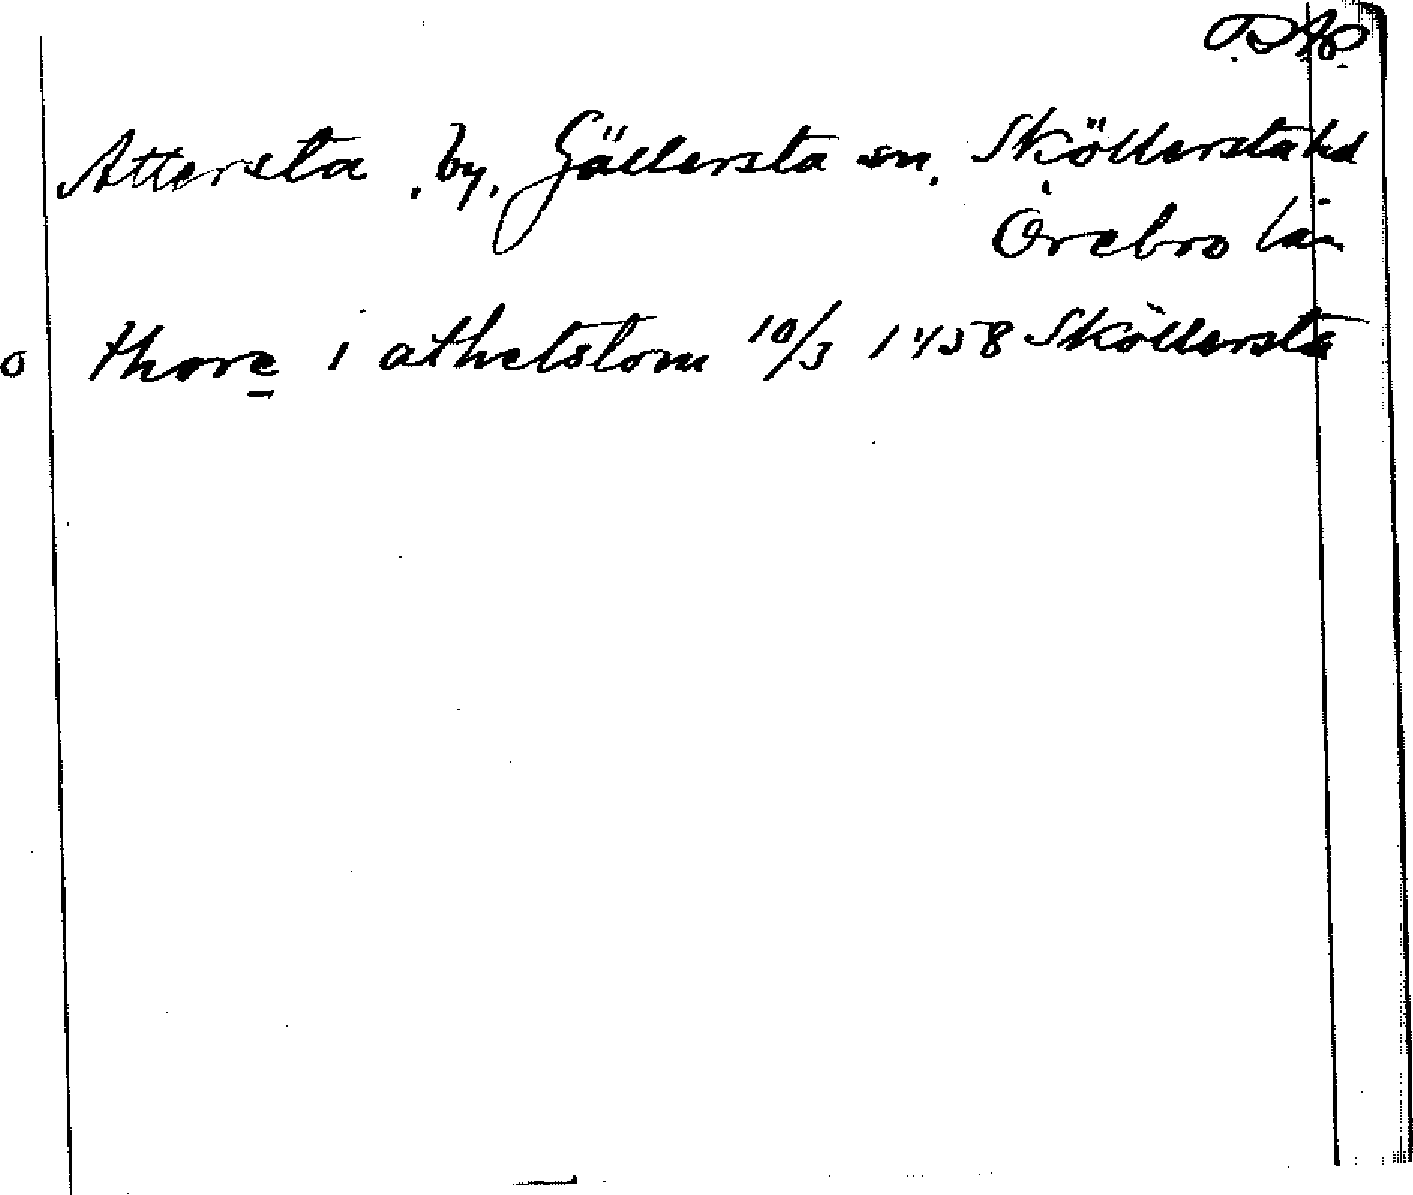 Attersta, by, Gällersta sn. Sköllersta hd
Örebro län
o thore i athetstom 10/3 1458 Sköllersta